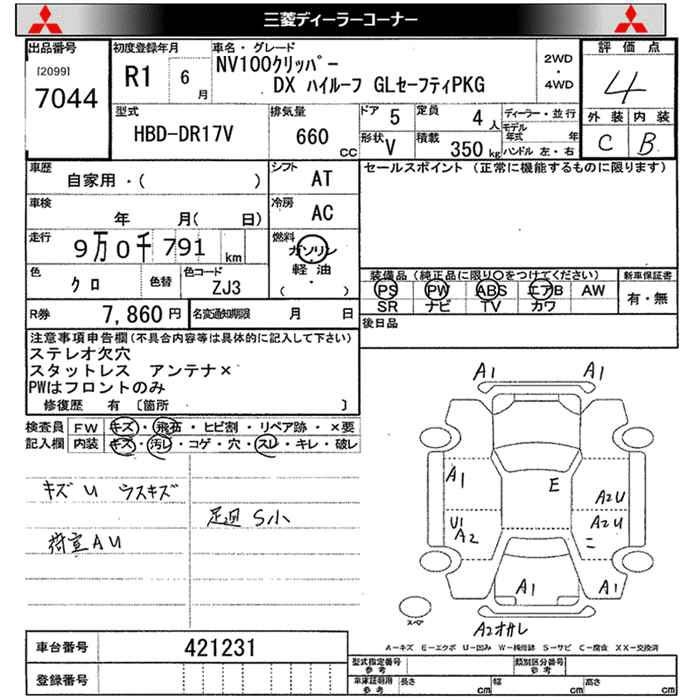 三菱ディーラーコーナー
出品番号 初度登録年月 車名・グレード 2WD ・ 4WD 評価点
[2099] 7044 R1 6月 NV100クリッパー
DX ハイルーフ GLセーフティPKG 4
型式 排気量 ドア 5 定員 4人 ディーラー・並行 外装 内装
HBD-DR17V 660 CC 形状 V 積載 350kg モデル年式 年 C B
ハンドル 左・右
車歴 シフト セールスポイント (正常に機能するものに限ります)
自家用・( ) AT
車検 冷房
年 月( 日) AC
走行 9万0千791 km 燃料 ガソリン
軽油
( ・ )
色 クロ 色替 色コード ZJ3
装備品(純正品に限り○をつけてください) 新車保証書
PS PW ABS エアB AW 有・無
SR ナビ TV カワ
R券 7,860円 名変通知期限 月 日
後日品
注意事項申告欄(不具合内容等は具体的に記入して下さい)
ステレオ欠穴
スタットレス アンテナ×
PWはフロントのみ
修復歴 有 〔箇所 〕
検査員 FW キズ・飛石・ヒビ割・リペア跡・×要
記入欄 内装 キズ・汚レ・コゲ・穴・スレ・キレ・破レ
キズU ウスキズ
足廻 S小
荷室AU
A1 A1
A1 E A2U
U1 A2 A2U
ニ
A1 A1
スペア
A2オサレ
A-キズ E-エクボ U-凹み W-補修跡 S-サビ C-腐食 XX-交換済
車台番号 421231
登録番号
型式指定番号 参考 類別区分番号 参考
車庫証明用 参考 長さ cm 幅 cm 高さ cm